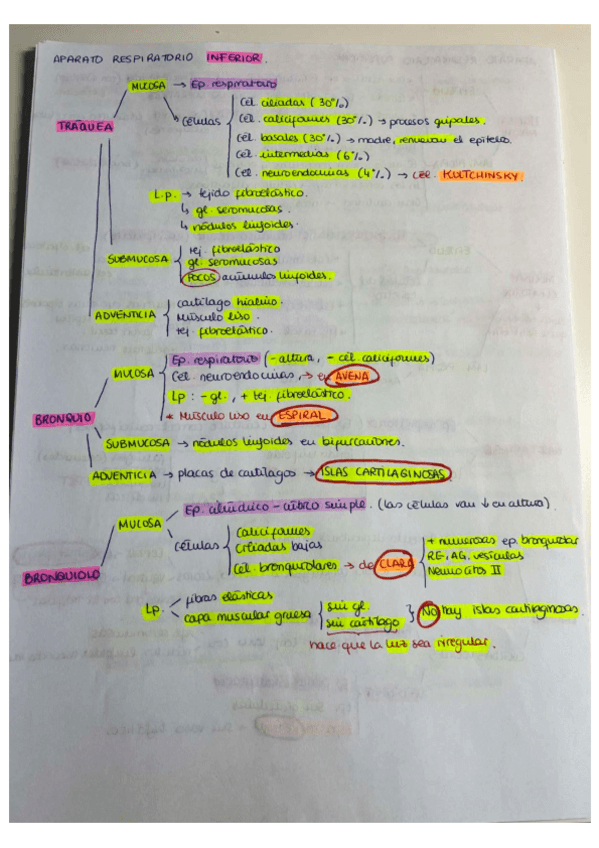 APARATO RESPIRATORIO INFERIOR.
MUCOSA → Ep respiratorio
TRÁQUEA
células
Cél. ciliadas (30%)
Cél. caliciformes (30%) → procesos gripales.
Cél. basales (30%) → madre, renuevan el epitelio.
Cél. intermedias (6%)
Cél. neuroendocrinas (4%) → cél. KULTCHINSKY.
L.p. → tejido fibroelástico.
↳ gl. seromucosas.
↳ nódulos linfoides.
SUBMUCOSA
tej. fibroelástico
gl. seromucosas
FOCOS acúmulos linfoides.
ADVENTICIA
cartílago hialino.
Músculo liso.
tej. fibroelástico.
BRONQUIO
MUCOSA
Ep. respiratorio (- altura, - cél. caliciformes)
Cél. neuroendocrinas, → en AVENA
Lp: - gl., + tej. fibroelástico.
* Músculo liso en ESPIRAL.
SUBMUCOSA → nódulos linfoides en bifurcaciones.
ADVENTICIA → placas de cartílagos → ISLAS CARTILAGINOSAS.
BRONQUIOLO
MUCOSA
Ep. cilíndrico - cúbico simple. (las células van ↓ en altura).
células
Caliciformes
Ciliadas bajas
Cél. bronquiolares → de CLARA
+ numerosas ep. bronquiolar
RE, AG, vesículas
Neumocitos II
Lp.
fibras elásticas
capa muscular gruesa
sin gl.
sin cartílago
NO hay islas cartilaginosas.
hace que la luz sea irregular.